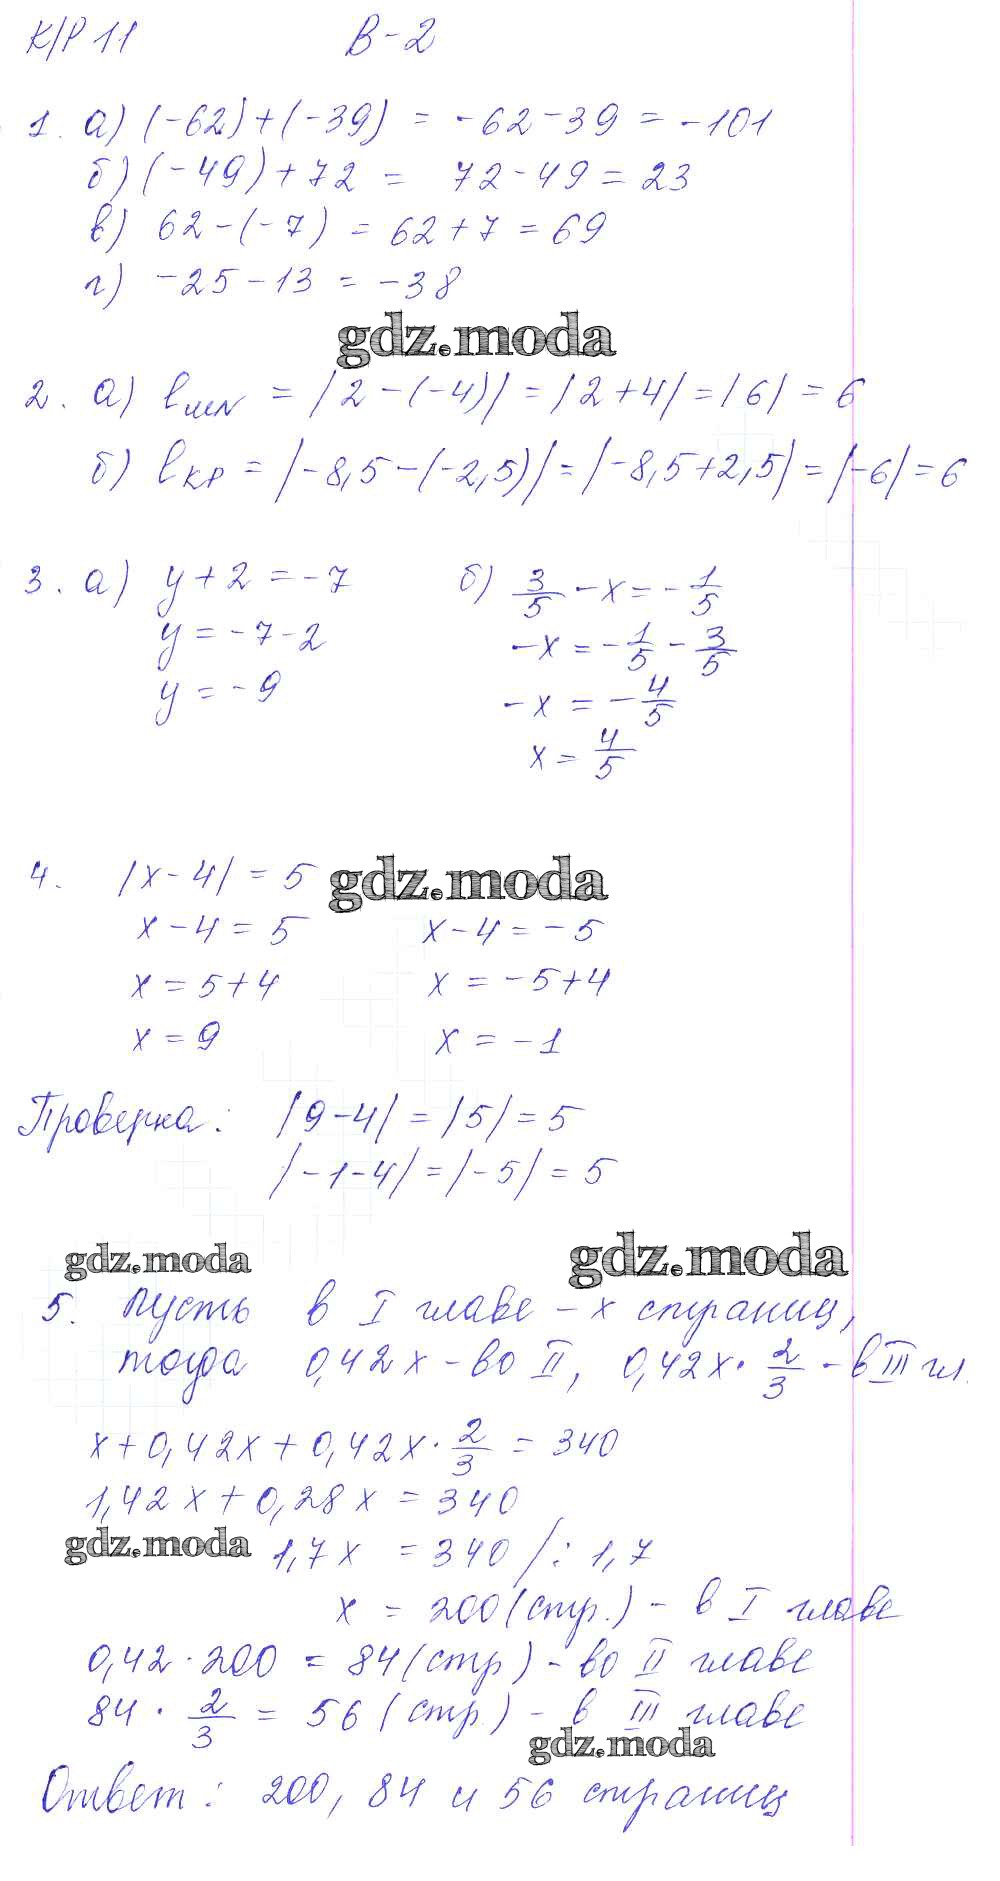 К/Р 11 В-2
1. а) (-62)+(-39) = -62-39 = -101
б) (-49)+72 = 72-49 = 23
в) 62-(-7) = 62+7 = 69
г) -25-13 = -38
gdz.moda
2. а) lMN = |2-(-4)| = |2+4| = |6| = 6
б) lKP = |-8,5-(-2,5)| = |-8,5+2,5| = |-6| = 6
3. а) y+2 = -7 б) 3/5 - x = -1/5
y = -7-2 -x = -1/5 - 3/5
y = -9 -x = -4/5
x = 4/5
4. |x-4| = 5 gdz.moda
x-4 = 5 x-4 = -5
x = 5+4 x = -5+4
x = 9 x = -1
Проверка: |9-4| = |5| = 5
|-1-4| = |-5| = 5
gdz.moda gdz.moda
5. Пусть в I главе - x страниц,
тогда 0,42x - во II, 0,42x · 2/3 - в III гл.
x+0,42x+0,42x · 2/3 = 340
1,42x+0,28x = 340
gdz.moda 1,7x = 340 /: 1,7
x = 200 (стр.) - в I главе
0,42 · 200 = 84 (стр) - во II главе
84 · 2/3 = 56 (стр.) - в III главе
gdz.moda
Ответ: 200, 84 и 56 страниц